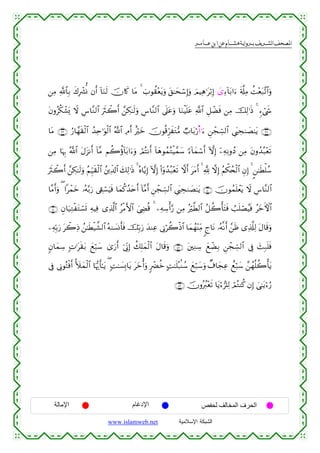 المصحف الشريف برواية هشام عن ابن عامر
وَٱتَّبَعْتُ مِلَّةَ ءَابَآءِىَ إِبْرَٰهِيمَ وَإِسْحَٰقَ وَيَعْقُوبَ ۚ مَا كَانَ لَنَآ أَن نُّشْرِكَ بِٱللَّهِ مِن
شَىْءٍ ۚ ذَٰلِكَ مِن فَضْلِ ٱللَّهِ عَلَيْنَا وَعَلَى ٱلنَّاسِ وَلَٰكِنَّ أَكْثَرَ ٱلنَّاسِ لَا يَشْكُرُونَ
﴿٣٨﴾ يَٰصَٰحِبَىِ ٱلسِّجْنِ ءَأَرْبَابٌ مُّتَفَرِّقُونَ خَيْرٌ أَمِ ٱللَّهُ ٱلْوَٰحِدُ ٱلْقَهَّارُ ﴿٣٩﴾ مَا
تَعْبُدُونَ مِن دُونِهِۦٓ إِلَّآ أَسْمَآءً سَمَّيْتُمُوهَآ أَنتُمْ وَءَابَآؤُكُم مَّآ أَنزَلَ ٱللَّهُ بِهَا مِن
سُلْطَٰنٍ ۚ إِنِ ٱلْحُكْمُ إِلَّا لِلَّهِ ۚ أَمَرَ أَلَّا تَعْبُدُوٓا۟ إِلَّآ إِيَّاهُ ۚ ذَٰلِكَ ٱلدِّينُ ٱلْقَيِّمُ وَلَٰكِنَّ أَكْثَرَ
ٱلنَّاسِ لَا يَعْلَمُونَ ﴿٤٠﴾ يَٰصَٰحِبَىِ ٱلسِّجْنِ أَمَّآ أَحَدُكُمَا فَيَسْقِى رَبَّهُۥ خَمْرًا ۖ وَأَمَّا
ٱلْءَاخَرُ فَيُصْلَبُ فَتَأْكُلُ ٱلطَّيْرُ مِن رَّأْسِهِۦ ۚ قُضِىَ ٱلْأَمْرُ ٱلَّذِى فِيهِ تَسْتَفْتِيَانِ ﴿٤١﴾
وَقَالَ لِلَّذِى ظَنَّ أَنَّهُۥ نَاجٍ مِّنْهُمَا ٱذْكُرْنِى عِندَ رَبِّكَ فَأَنسَىٰهُ ٱلشَّيْطَٰنُ ذِكْرَ رَبِّهِۦ
فَلَبِثَ فِى ٱلسِّجْنِ بِضْعَ سِنِينَ ﴿٤٢﴾ وَقَالَ ٱلْمَلِكُ إِنِّىٓ أَرَىٰ سَبْعَ بَقَرَٰتٍ سِمَانٍ
يَأْكُلُهُنَّ سَبْعٌ عِجَافٌ وَسَبْعَ سُنۢبُلَٰتٍ خُضْرٍ وَأُخَرَ يَابِسَٰتٍ ۖ يَٰٓأَيُّهَا ٱلْمَلَأُ أَفْتُونِى فِى
رُءْيَٰىَ إِن كُنتُمْ لِلرُّءْيَا تَعْبُرُونَ ﴿٤٣﴾
الحرف المخالف لحفص الإدغام الإمالة
الشبكة الإسلامية www.islamweb.net